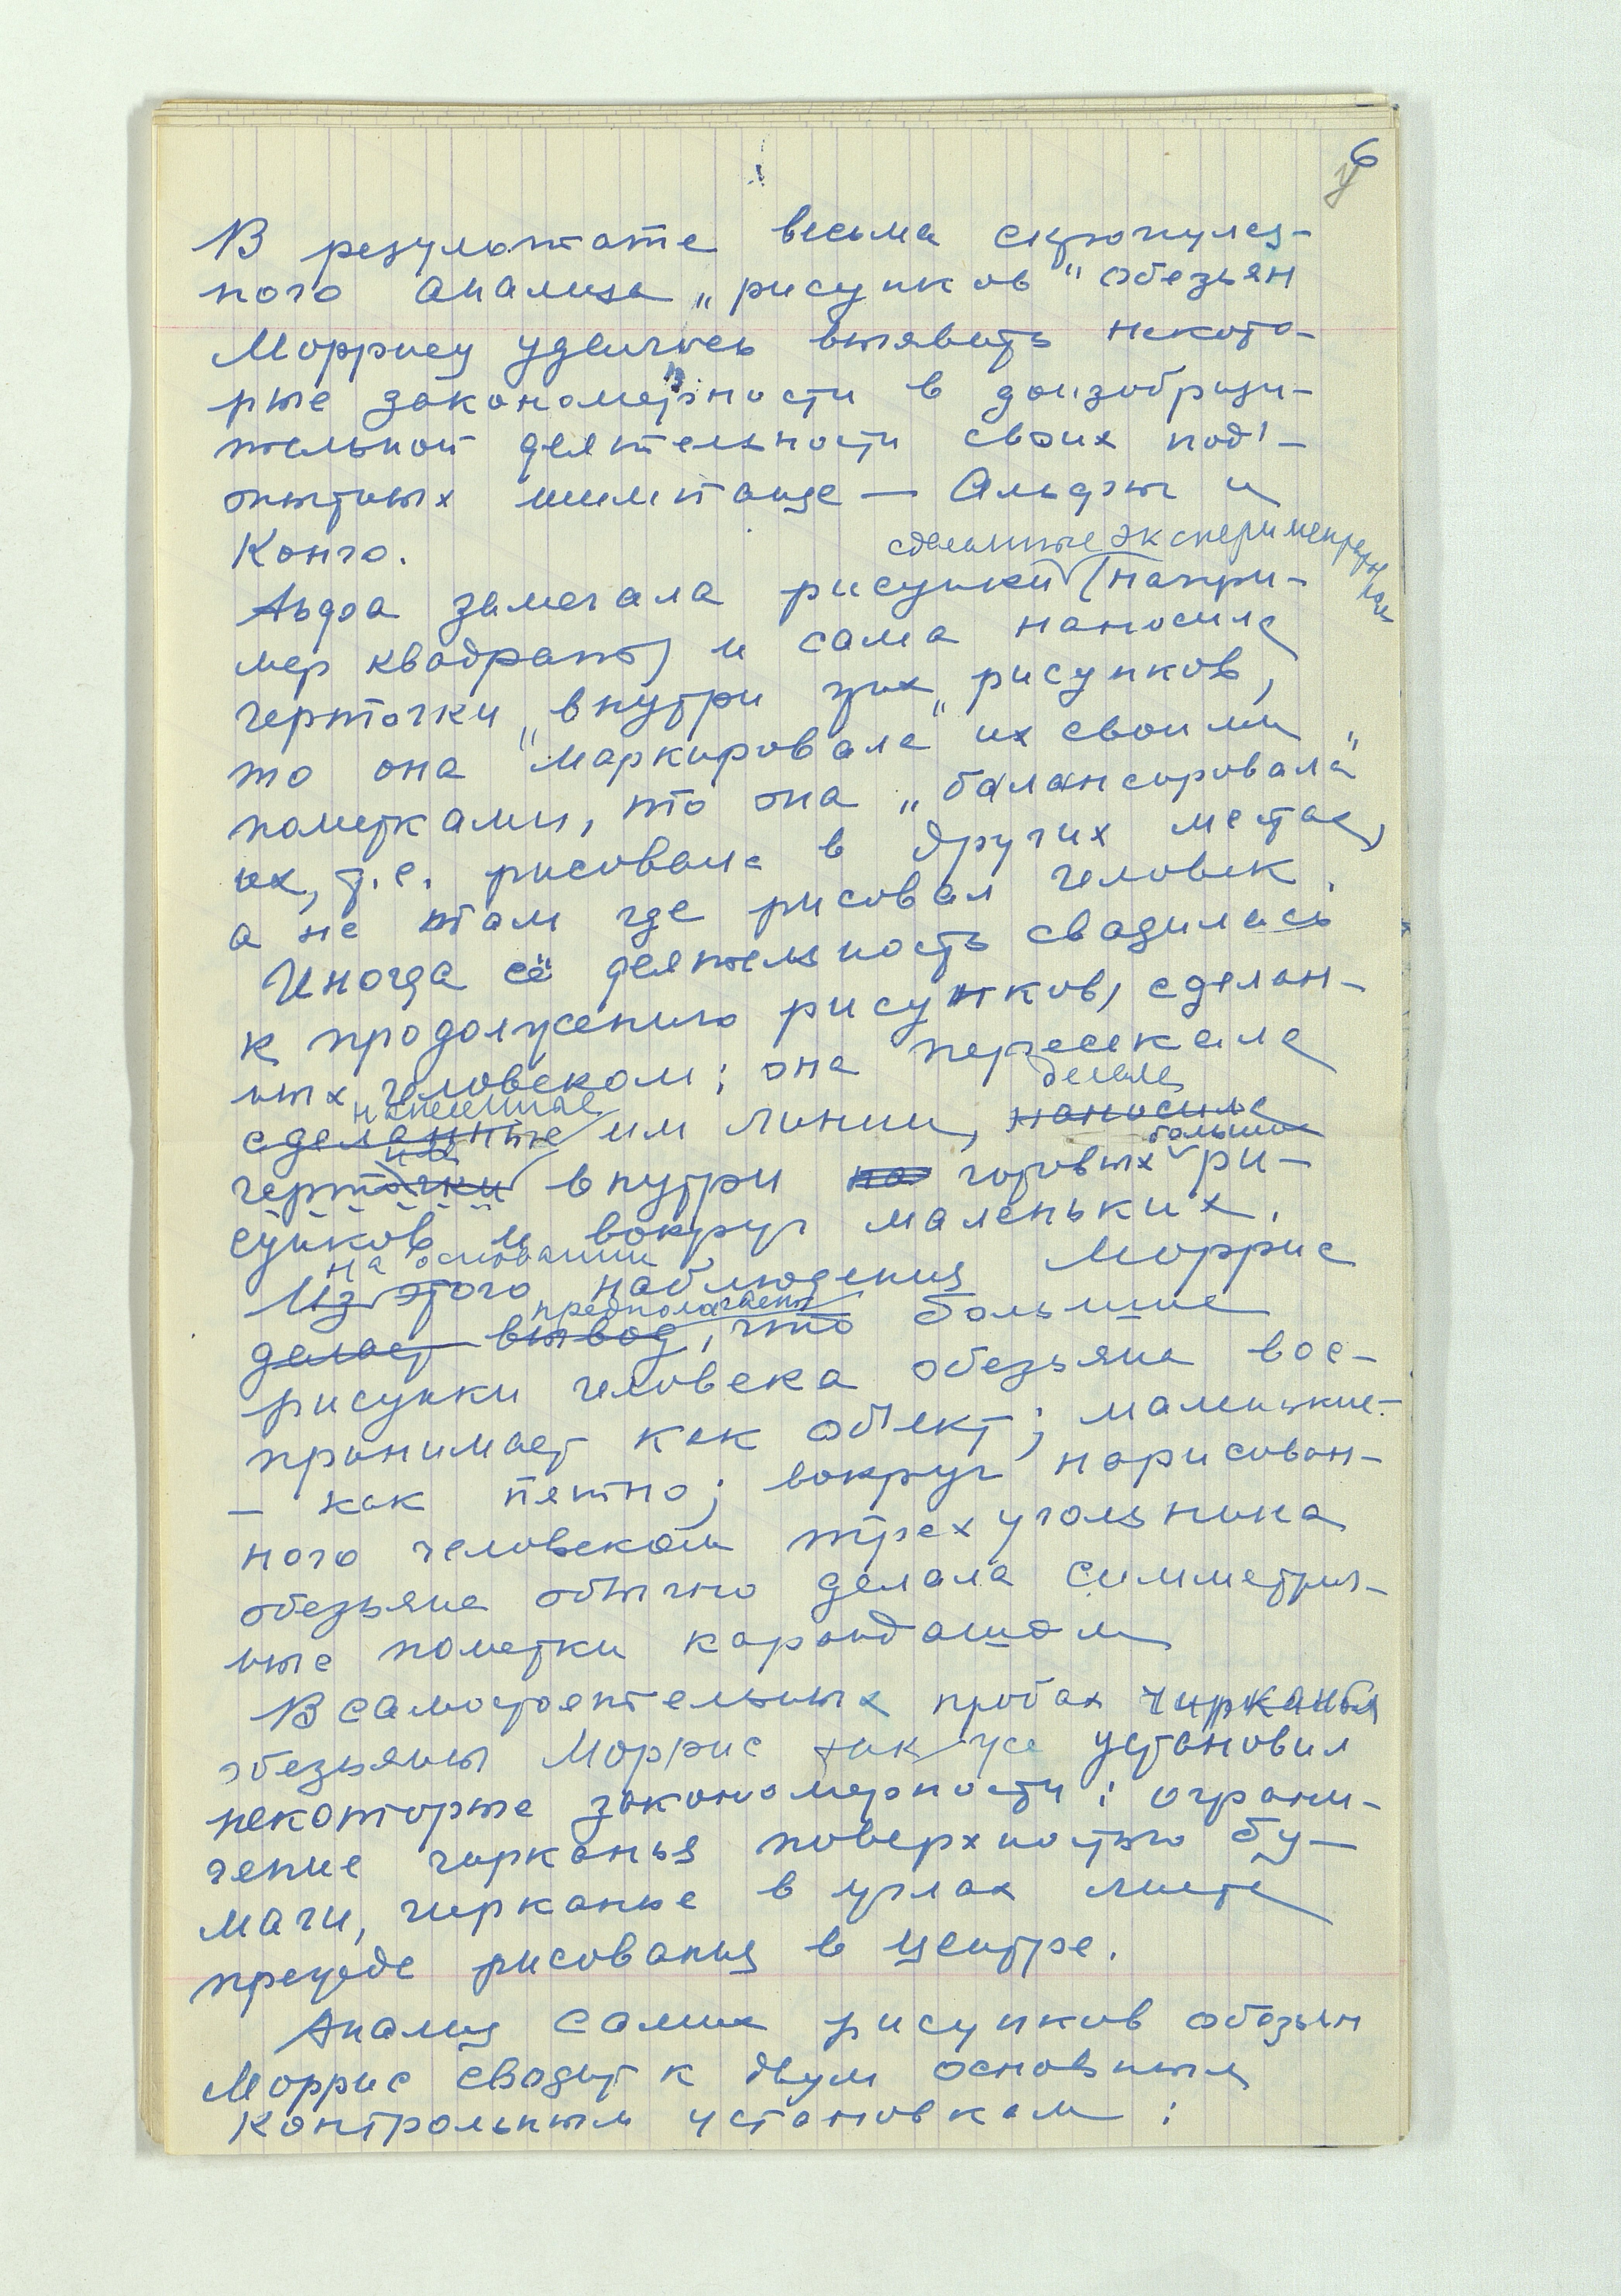 6
у
В результате весьма скрупулез-
ного анализа „рисунков" обезьян
Моррису удалось выявить некото-
рые закономерности в доизобрази-
тельной деятельности своих под'-
опытных шимпанзе — Альфы и
Конго.
сделанные экспериментатором
замечала рисунки (напри-
мер квадраты) и сама наносила
черточки внутри этих рисунков,
то она „маркировала" их своими
пометками, то она „балансировала"
их, т.е. рисовала в других местах,
а не там где рисовал человек.
Иногда её деятельность сводилась
к продолжению рисунков, сделан-
ных человеком; она пересекала
нанесенные делала
сделанные им линии, наносила
большие
черточки внутри на готовых ри-
сунков и вокруг маленьких.
на основании
Из этого наблюдения Моррис
предполагает
делает вывод, что большие
рисунки человека обезьяна вос-
принимает как об'ект; маленькие-
– как пятно; вокруг нарисован-
ного человеком треугольника
обезьяна обычно делала симметрич-
ные пометки карандашом
В самостоятельных пробах чирканья
обезьяны Моррис так же установил
некоторые закономерности: ограни-
чение чирканья поверхностью бу-
маги, чирканье в углах листа
прежде рисования в центре.
Анализ самих рисунков обезьян
Моррис сводит к двум основным
контрольным установкам: